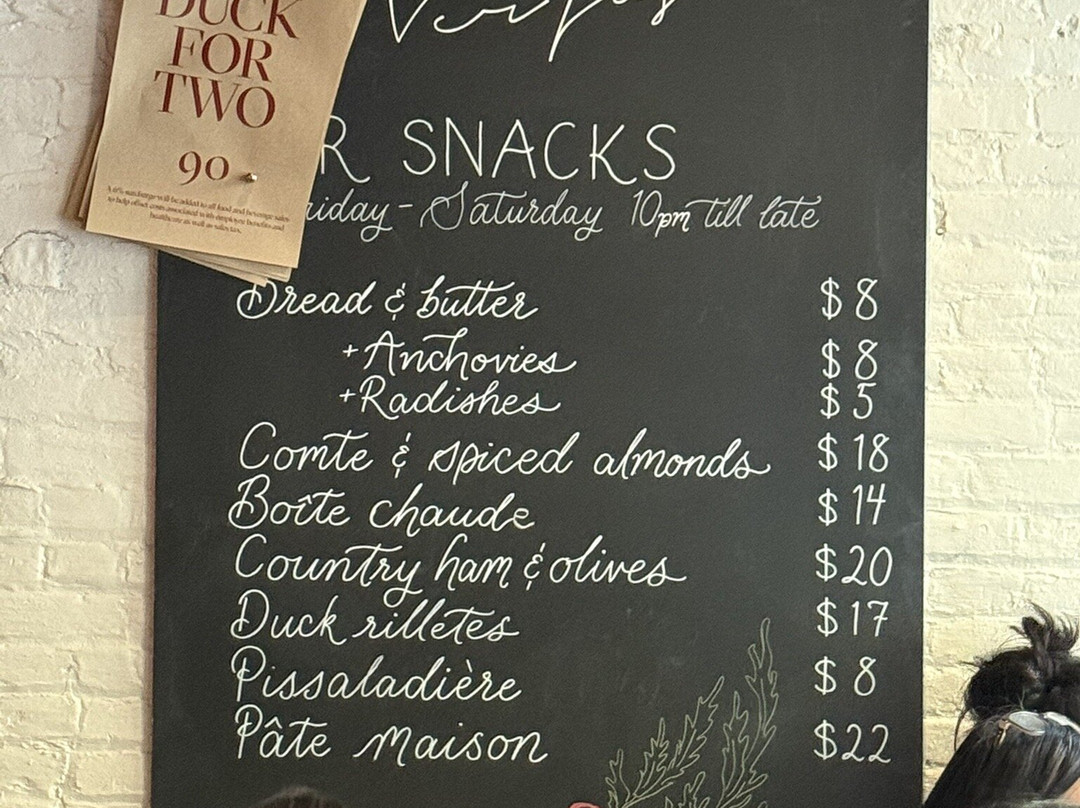 DUCK
FOR
TWO
90
A 6% surcharge will be added to all food and beverage sales
to help offset costs associated with employee benefits and
healthcare as well as sales tax.
R SNACKS
riday - Saturday 10pm till late
Bread & butter $8
+Anchovies $8
+Radishes $5
Comte & spiced almonds $18
Boîte chaude $14
Country ham & olives $20
Duck rilletes $17
Pissaladière $8
Pâte Maison $22